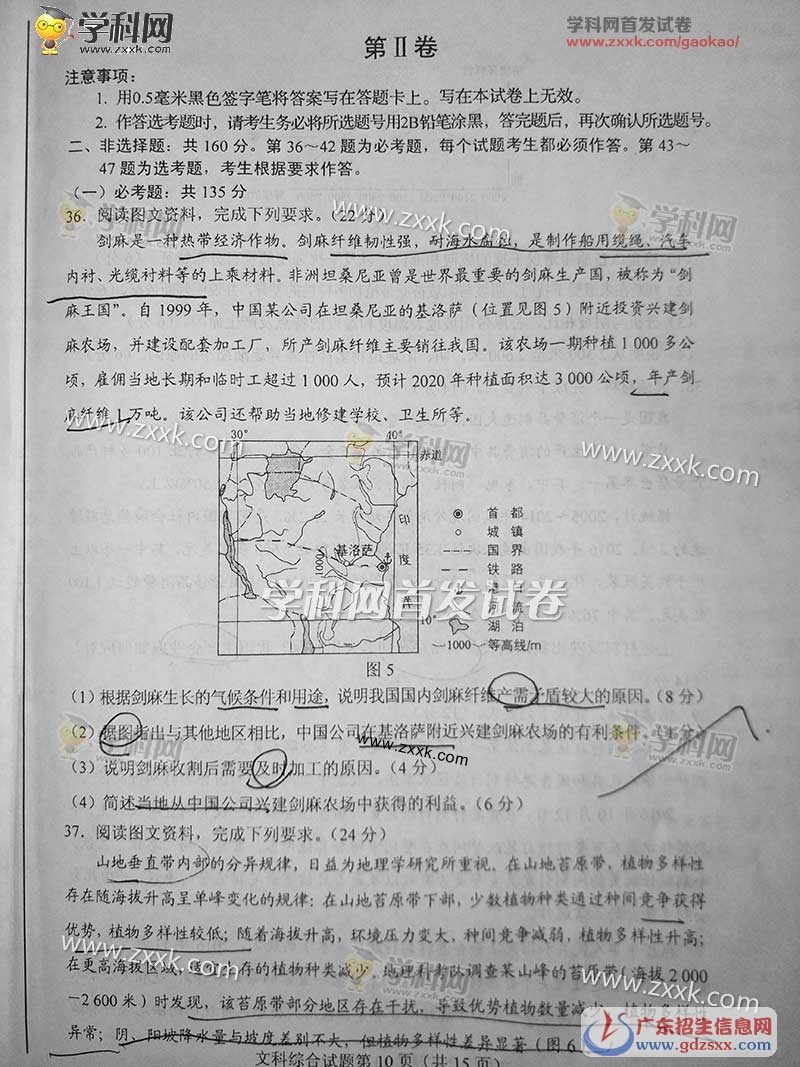 学科网
www.zxxk.com
学科网首发试卷
www.zxxk.com/gaokao/
第Ⅱ卷
注意事项：
1. 用0.5毫米黑色签字笔将答案写在答题卡上。写在本试卷上无效。
2. 作答选考题时，请考生务必将所选题号用2B铅笔涂黑，答完题后，再次确认所选题号。
二、非选择题：共 160 分。第 36～42 题为必考题，每个试题考生都必须作答。第 43～
47 题为选考题，考生根据要求作答。
（一）必考题：共 135 分
36．阅读图文资料，完成下列要求。（22 分）
剑麻是一种热带经济作物。剑麻纤维韧性强，耐海水腐蚀，是制作船用缆绳、汽车
内衬、光缆衬料等的上乘材料。非洲坦桑尼亚曾是世界最重要的剑麻生产国，被称为“剑
麻王国”。自 1999 年，中国某公司在坦桑尼亚的基洛萨（位置见图 5）附近投资兴建剑
麻农场，并建设配套加工厂，所产剑麻纤维主要销往我国。该农场一期种植 1 000 多公
顷，雇佣当地长期和临时工超过 1 000 人，预计 2020 年种植面积达 3 000 公顷，年产剑
麻纤维 1 万吨。该公司还帮助当地修建学校、卫生所等。
30° 40°
赤道
印
度
洋
基洛萨
1000
10°
首都
城镇
国界
铁路
港口
河流
湖泊
1000 等高线/m
学科网首发试卷
图 5
（1）根据剑麻生长的气候条件和用途，说明我国国内剑麻纤维产需矛盾较大的原因。（8 分）
（2）据图指出与其他地区相比，中国公司在基洛萨附近兴建剑麻农场的有利条件。（4 分）
（3）说明剑麻收割后需要及时加工的原因。（4 分）
（4）简述当地从中国公司兴建剑麻农场中获得的利益。（6 分）
37．阅读图文资料，完成下列要求。（24 分）
山地垂直带内部的分异规律，日益为地理学研究所重视。在山地苔原带，植物多样性
存在随海拔升高呈单峰变化的规律：在山地苔原带下部，少数植物种类通过种间竞争获得
优势，植物多样性较低；随着海拔升高，环境压力变大，种间竞争减弱，植物多样性升高；
在更高海拔区域，适宜生存的植物种类减少。地理科考队调查某山峰的苔原带（海拔 2 000
－2 600 米）时发现，该苔原带部分地区存在干扰，导致优势植物数量减少，植物多样性
异常；阴、阳坡降水量与坡度差别不大，但植物多样性差异显著（图 6
文科综合试题第 10 页（共 15 页）
广东招生信息网
www.gdzsxx.com